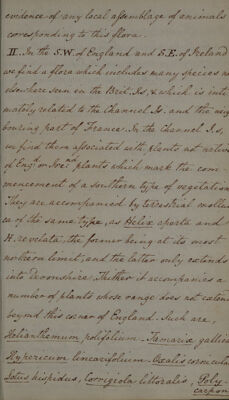 evidence of any local assemblage of animals
corresponding to this flora.
II. In the S.W. of England and S.E. of Ireland
we find a flora which includes many species not
elsewhere seen in the Brit. Is, & which is inti
mately related to the Channel Is. and the neigh
bouring part of France. In the Channel Is,
we find them associated with plants not natives
of Engd. or Ireld. plants which mark the com
mencement of a southern type of vegetation
They are accompanied by terrestrial mollus
ca of the same type, as Helix aperta and
H. revelata, the former being at its most
northern limit, and the latter only extends
into Devonshire. Thither it accompanies a
number of plants whose range does not extend
beyond this corner of England. Such are,
Helianthemum polifolium. Tamarix gallica
Hypericum linearifolium. Oxalis corniculata
Lotus hispidus, Corrigiola littoralis, Poly
carpon